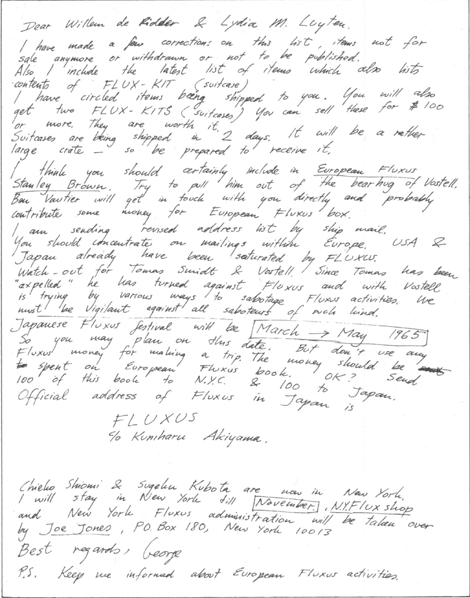 Dear Willem de Ridder & Lydia M. Luyten.
I have made a few corrections on this list, items not for
sale anymore or withdrawn or not to be published.
Also I include the latest list of items which also lists
contents of FLUX-KIT (suitcase)
I have circled items being shipped to you. You will also
get two FLUX-KITS (suitcases) You can sell these for $100
or more. They are worth it.
Suitcases are being shipped in 2 days. It will be a rather
large crate — so be prepared to receive it.
I think you should certainly include in European Fluxus
Stanley Brown. Try to pull him out of the bearhug of Vostell.
Ben Vautier will get in touch with you directly and probably
contribute some money for European Fluxus box.
I am sending revised address list by ship mail.
You should concentrate on mailings within Europe. USA &
Japan already have been saturated by FLUXUS.
Watch-out for Tomas Smidt & Vostell. Since Tomas has been
"expelled" he has turned against Fluxus and with Vostell
is trying by various ways to sabotage Fluxus activities. We
must be Vigilant against all saboteurs of such kind.
Japanese Fluxus festival will be March → May 1965
So you may plan on this date. But don't use any
Fluxus money for making a trip. The money should be
spent on European Fluxus book. OK? Send
100 of this book to N.Y.C. & 100 to Japan.
Official address of Fluxus in Japan is
FLUXUS
c/o Kuniharu Akiyama.
Chieko Shiomi & Sugeko Kubota are now in New York.
I will stay in New York till November, N.Y. Flux shop
and New York Fluxus administration will be taken over
by Joe Jones, P.O. Box 180, New York 10013
Best regards, George
P.S. Keep me informed about European Fluxus activities.